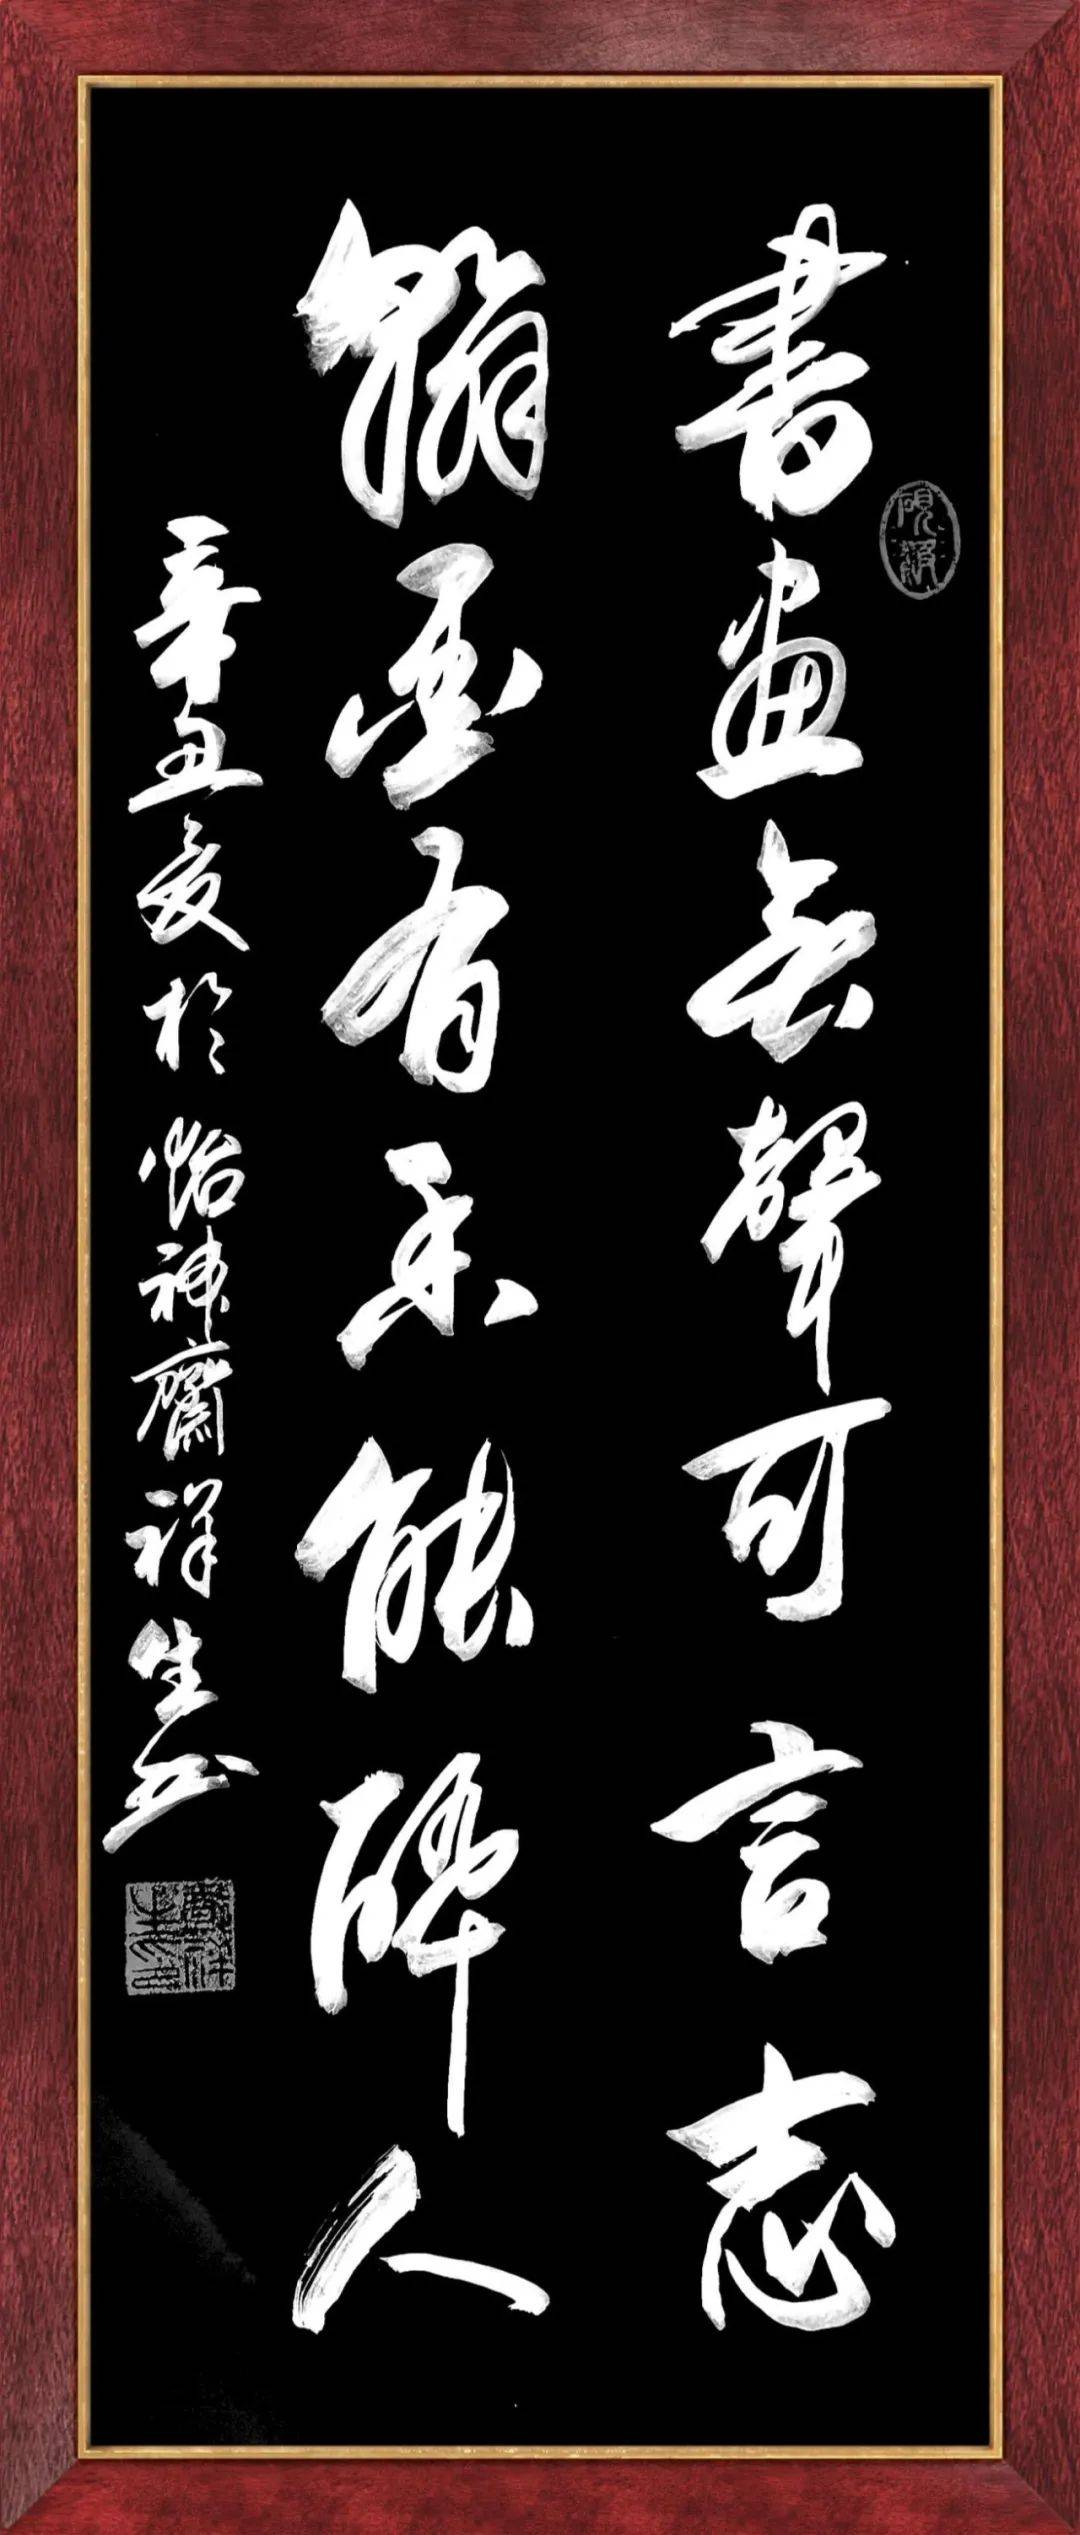 書畫無聲可言志
翰墨有香能醉人
辛丑夏於怡神齋祥生書